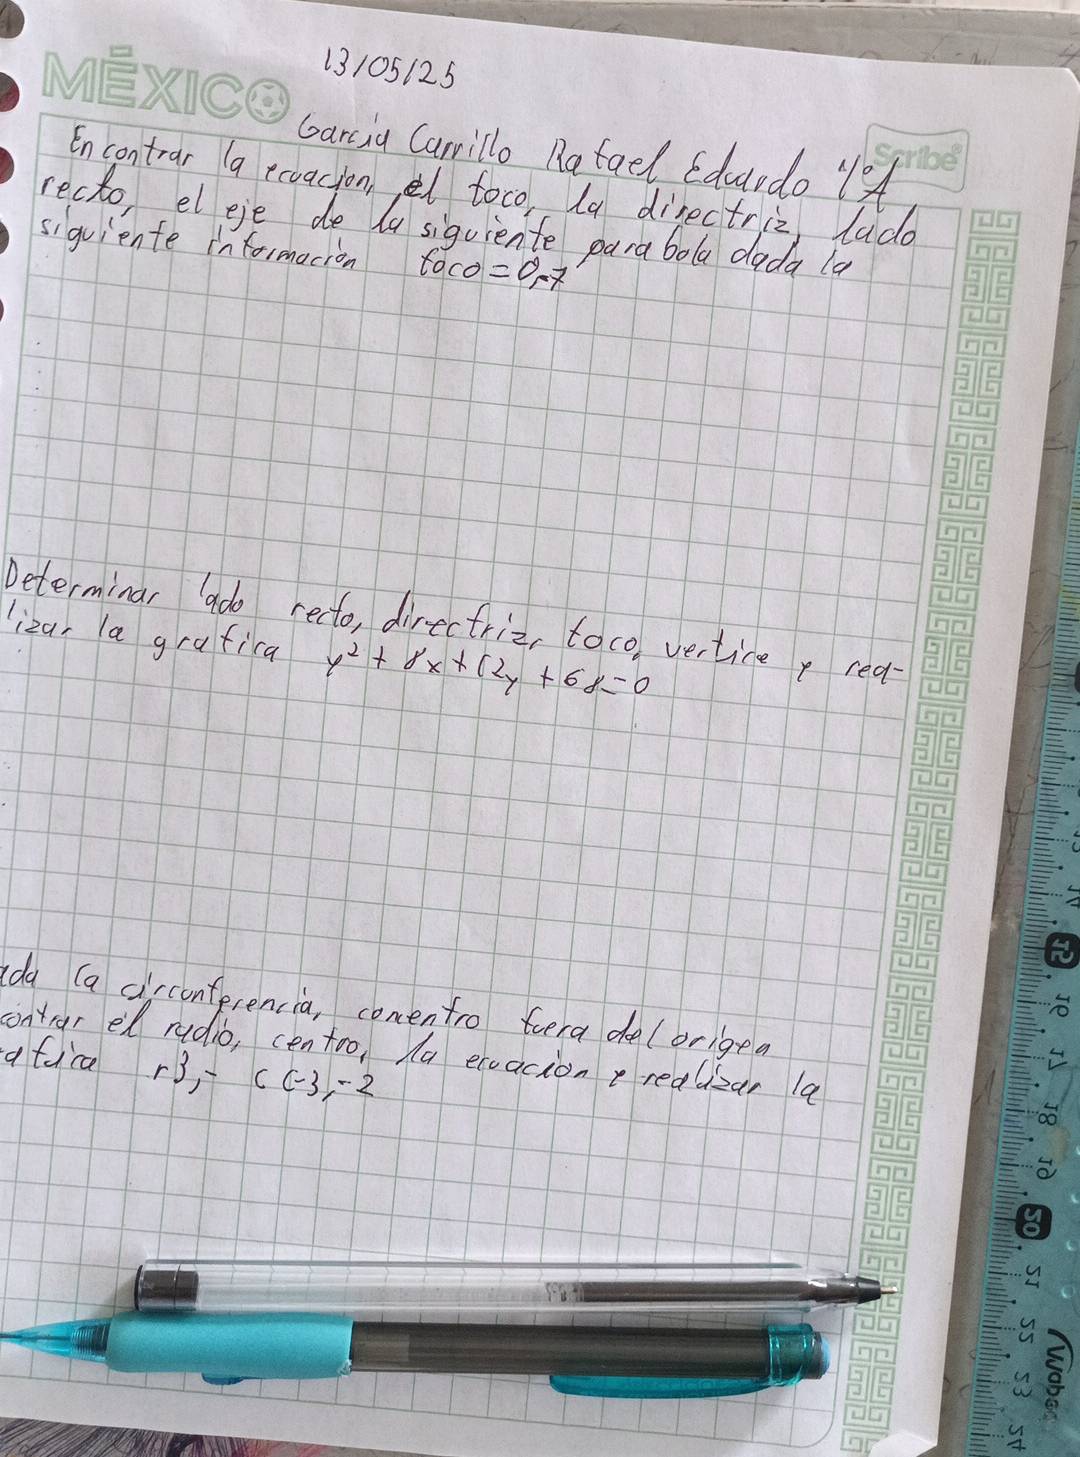 MÉXICO
13/05/25
Scribe
García Carrillo Rafael Eduardo 4°A
Encontrar la ecuación, el foco, la directriz, lado
recto, el eje de la siguiente parabola dada la
siguiente información foco=0,-7
Determinar lado recto, directriz, foco, vertice y rea-
lizar la grafica y²+8x+12y+68=0
ada la circunferencia, concentro fuera del origen
contrar el radio, centro, la ecuacion y realizar la
afica r3,- C(-3,-2
14
15
16
17
18
19
20
21
22
23
24